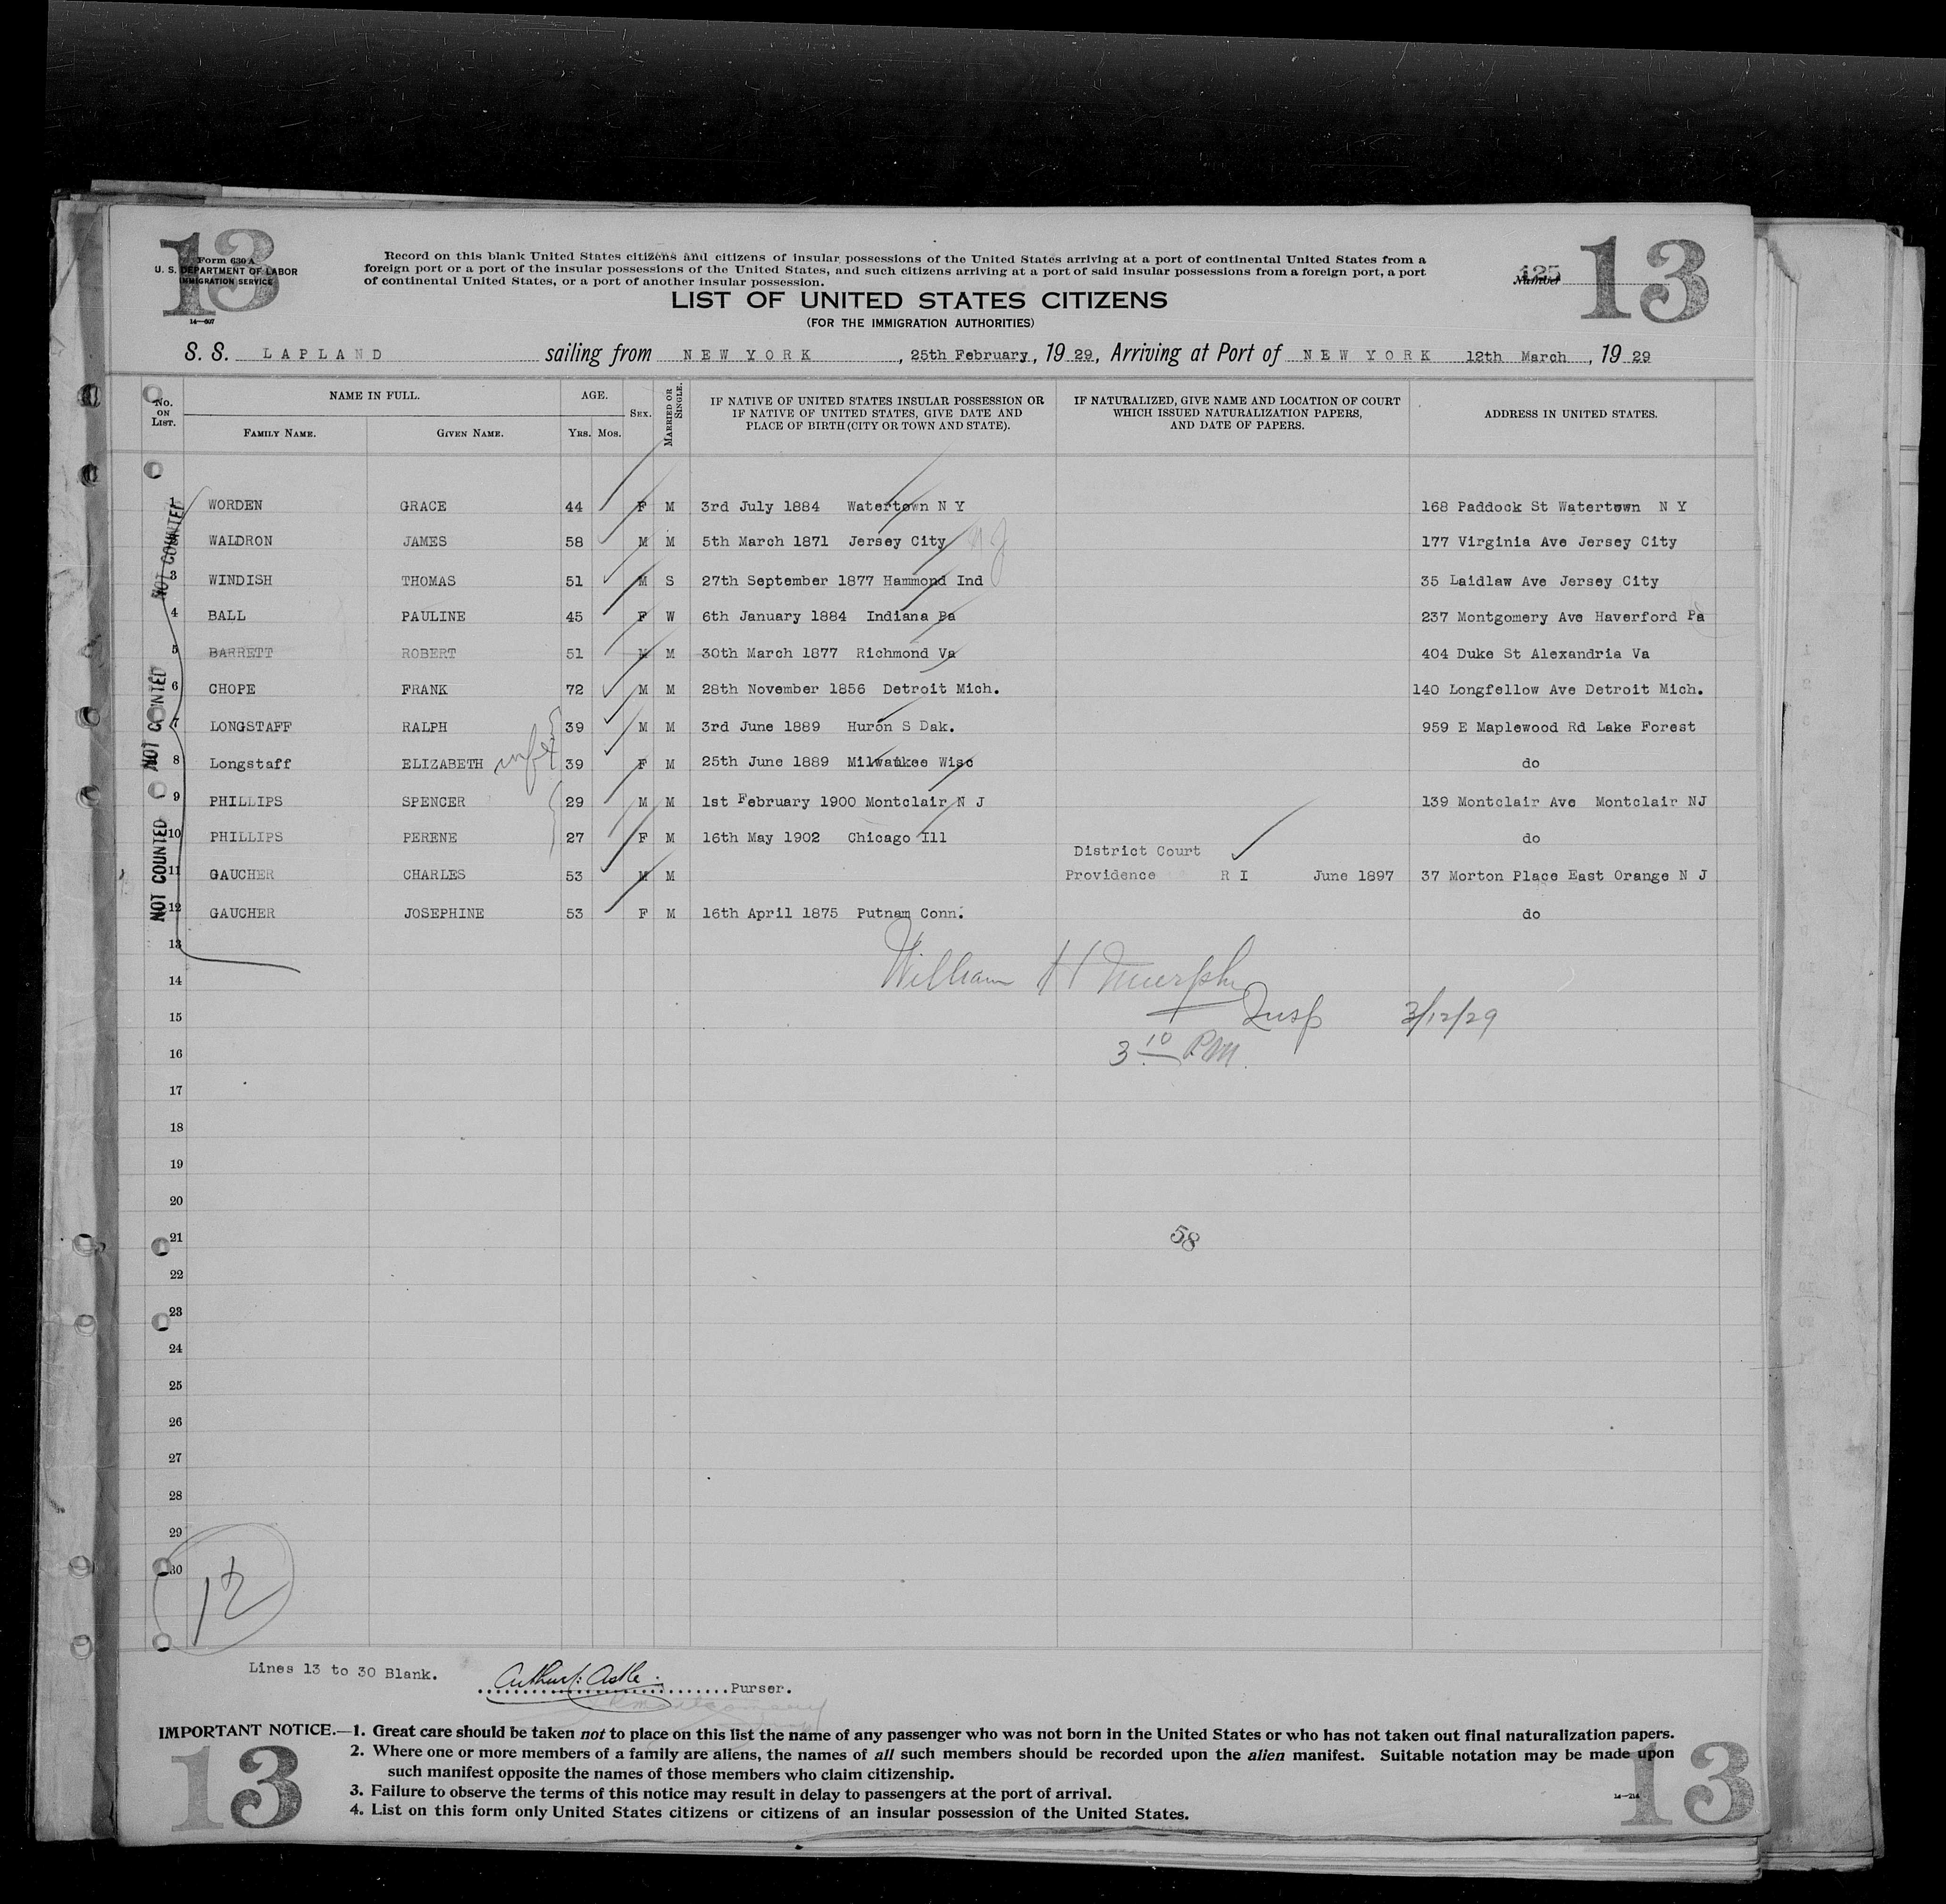 13
13
Form 630 A
U. S. DEPARTMENT OF LABOR
IMMIGRATION SERVICE
14—607
Record on this blank United States citizens and citizens of insular possessions of the United States arriving at a port of continental United States from a
foreign port or a port of the insular possessions of the United States, and such citizens arriving at a port of said insular possessions from a foreign port, a port
of continental United States, or a port of another insular possession.
125
Number
LIST OF UNITED STATES CITIZENS
(FOR THE IMMIGRATION AUTHORITIES)
S. S. LAPLAND sailing from NEW YORK, 25th February, 19 29, Arriving at Port of NEW YORK 12th March, 19 29
No. ON LIST. NAME IN FULL. AGE. SEX. MARRIED OR SINGLE. IF NATIVE OF UNITED STATES INSULAR POSSESSION OR IF NATIVE OF UNITED STATES, GIVE DATE AND PLACE OF BIRTH (CITY OR TOWN AND STATE). IF NATURALIZED, GIVE NAME AND LOCATION OF COURT WHICH ISSUED NATURALIZATION PAPERS, AND DATE OF PAPERS. ADDRESS IN UNITED STATES.
FAMILY NAME. GIVEN NAME. YRS. MOS.
1 WORDEN GRACE 44 F M 3rd July 1884 Watertown N Y 168 Paddock St Watertown N Y
WALDRON JAMES 58 M M 5th March 1871 Jersey City N J 177 Virginia Ave Jersey City
3 WINDISH THOMAS 51 M S 27th September 1877 Hammond Ind 35 Laidlaw Ave Jersey City
4 BALL PAULINE 45 F W 6th January 1884 Indiana Pa 237 Montgomery Ave Haverford Pa
5 BARRETT ROBERT 51 M M 30th March 1877 Richmond Va 404 Duke St Alexandria Va
6 CHOPE FRANK 72 M M 28th November 1856 Detroit Mich. 140 Longfellow Ave Detroit Mich.
7 LONGSTAFF RALPH 39 M M 3rd June 1889 Huron S Dak. 959 E Maplewood Rd Lake Forest
8 Longstaff ELIZABETH wife 39 F M 25th June 1889 Milwaukee Wisc do
9 PHILLIPS SPENCER 29 M M 1st February 1900 Montclair N J 139 Montclair Ave Montclair NJ
10 PHILLIPS PERENE 27 F M 16th May 1902 Chicago Ill do
District Court
11 GAUCHER CHARLES 53 M M Providence R I June 1897 37 Morton Place East Orange N J
12 GAUCHER JOSEPHINE 53 F M 16th April 1875 Putnam Conn. do
NOT COUNTED
NOT COUNTED
NOT COUNTED
13
14 William H Murphy
15 Insp 3/12/29
16 3 10 PM
17
18
19
20
21 58
22
23
24
25
26
27
28
29
30
12
Lines 13 to 30 Blank.
Arthur J. Astle Purser.
IMPORTANT NOTICE.—1. Great care should be taken not to place on this list the name of any passenger who was not born in the United States or who has not taken out final naturalization papers.
2. Where one or more members of a family are aliens, the names of all such members should be recorded upon the alien manifest. Suitable notation may be made upon
such manifest opposite the names of those members who claim citizenship.
3. Failure to observe the terms of this notice may result in delay to passengers at the port of arrival.
4. List on this form only United States citizens or citizens of an insular possession of the United States.
14—214
13
13